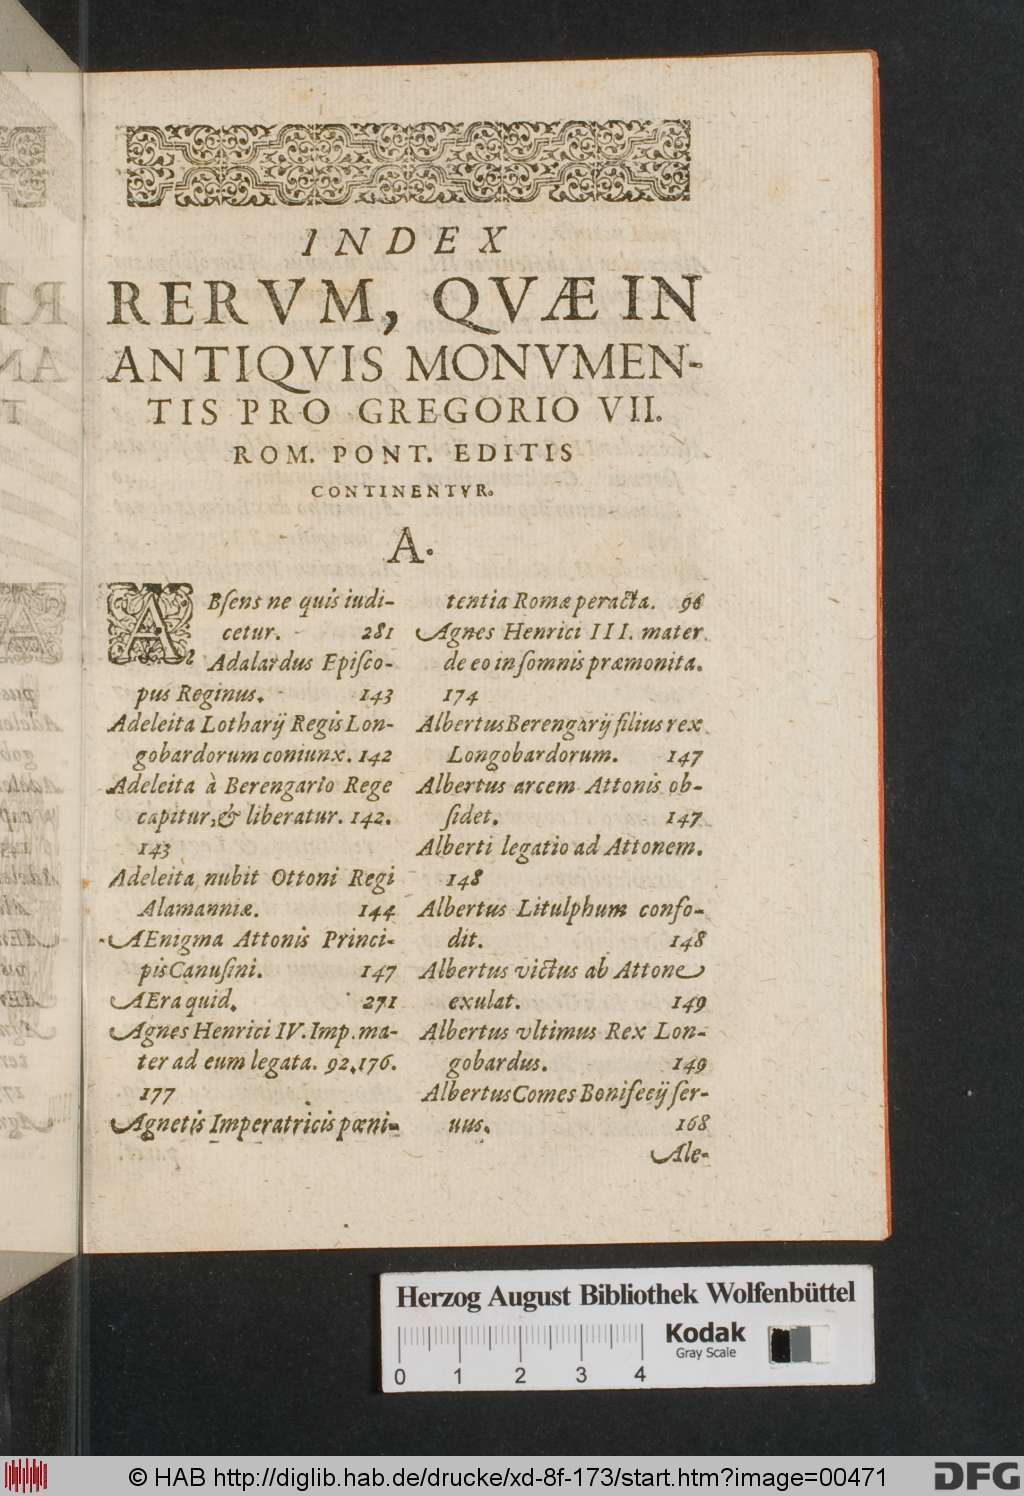 INDEX
RERVM, QVÆ IN
ANTIQVIS MONVMEN-
TIS PRO GREGORIO VII.
ROM. PONT. EDITIS
CONTINENTVR.
A.
ABſens ne quis iudi-
cetur. 281
Adalardus Epiſco-
pus Reginus. 143
Adeleita Lotharij Regis Lon-
gobardorum coniunx. 142
Adeleita à Berengario Rege
capitur, & liberatur. 142.
143
Adeleita nubit Ottoni Regi
Alamanniæ. 144
AEnigma Attonis Princi-
pis Canuſini. 147
AEra quid. 271
Agnes Henrici IV. Imp. ma-
ter ad eum legata. 92.176.
177
Agnetis Imperatricis pœni-
tentia Romæ peracta. 96
Agnes Henrici III. mater
de eo in ſomnis præmonita.
174
Albertus Berengarij filius rex
Longobardorum. 147
Albertus arcem Attonis ob-
ſidet. 147
Alberti legatio ad Attonem.
148
Albertus Litulphum confo-
dit. 148
Albertus victus ab Attone
exulat. 149
Albertus vltimus Rex Lon-
gobardus. 149
Albertus Comes Bonifecij ſer-
uus. 168
Ale-
Herzog August Bibliothek Wolfenbüttel
Kodak
Gray Scale
0 1 2 3 4
© HAB http://diglib.hab.de/drucke/xd-8f-173/start.htm?image=00471
DFG